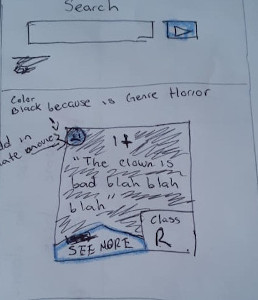 Search
Color
Black because is Genre Horror
dd in
ate movie?
It
"The clown is
bad blah blah
blah"
Class
R
SEE MORE